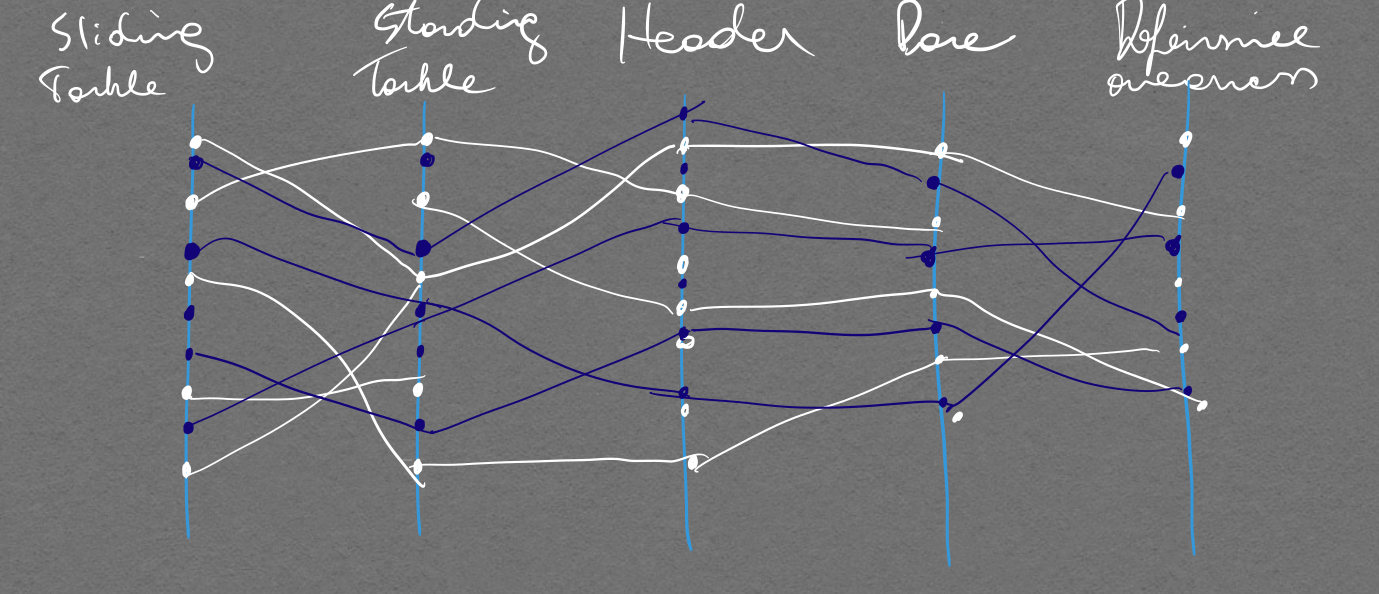 Sliding
Tackle
Standing
Tackle
Header
Pace
Defensive
awareness